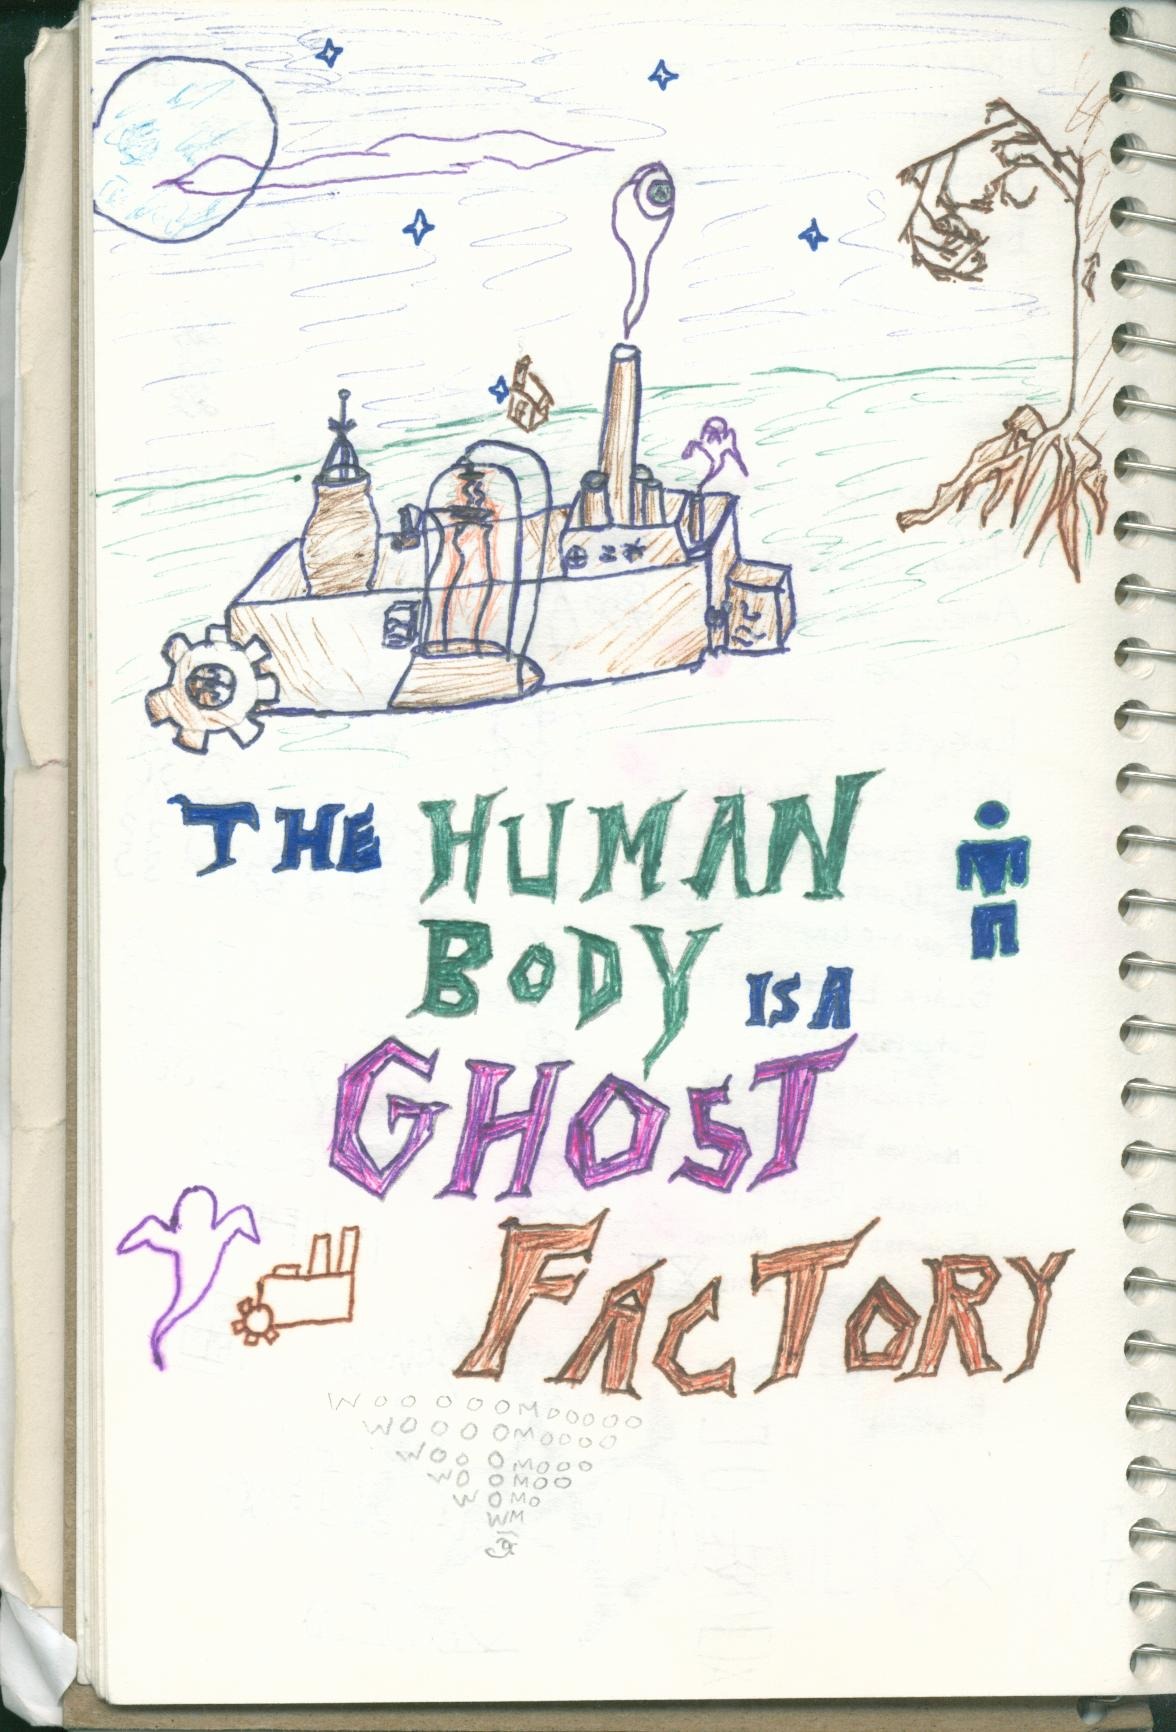 THE HUMAN
BODY IS A
GHOST
FACTORY
WOOOOOMOOOOO
WOOOOMOOOO
WOOOMOOO
WOOMOO
WOMO
WM